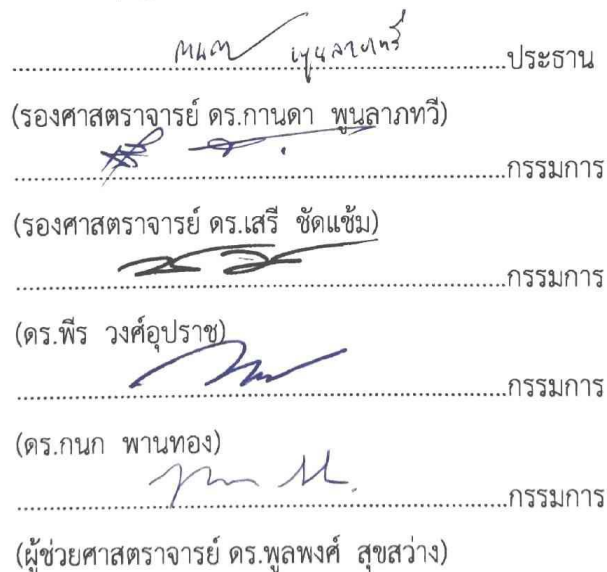 กานดา พูนลาภทวี
........................................ประธาน
(รองศาสตราจารย์ ดร.กานดา พูนลาภทวี)
........................................กรรมการ
(รองศาสตราจารย์ ดร.เสรี ชัดแช้ม)
........................................กรรมการ
(ดร.พีร วงศ์อุปราช)
........................................กรรมการ
(ดร.กนก พานทอง)
........................................กรรมการ
(ผู้ช่วยศาสตราจารย์ ดร.พูลพงศ์ สุขสว่าง)